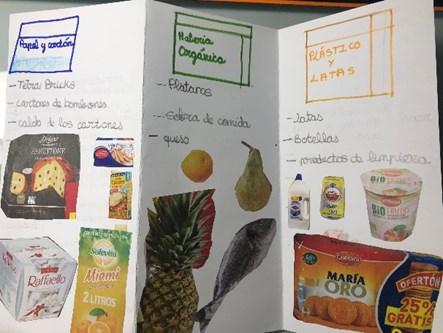 Papel y cartón
— Tetra Bricks
— cartones de bombones
— caldo de los cartones
Raffaello
Miami
2 LITROS
Materia
Orgánica
— Plátanos
— Sobra de comida
— queso
PLÁSTICO
Y
LATAS
— Latas
— Botellas
— productos de limpieza
BIO
MARÍA
ORO
OFERTÓN
25%
GRATIS